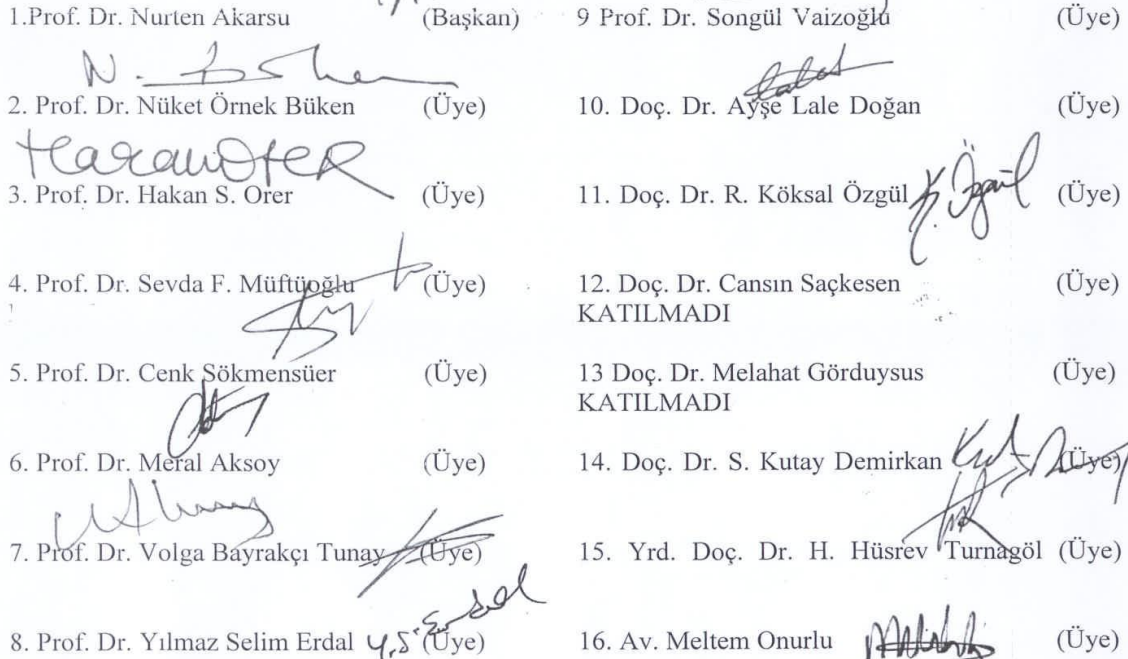 1.Prof. Dr. Nurten Akarsu (Başkan)
2. Prof. Dr. Nüket Örnek Büken (Üye)
3. Prof. Dr. Hakan S. Orer (Üye)
4. Prof. Dr. Sevda F. Müftüoğlu (Üye)
5. Prof. Dr. Cenk Sökmensüer (Üye)
6. Prof. Dr. Meral Aksoy (Üye)
7. Prof. Dr. Volga Bayrakçı Tunay (Üye)
8. Prof. Dr. Yılmaz Selim Erdal (Üye)
9 Prof. Dr. Songül Vaizoğlu (Üye)
10. Doç. Dr. Ayşe Lale Doğan (Üye)
11. Doç. Dr. R. Köksal Özgül (Üye)
K. Özgül
12. Doç. Dr. Cansın Saçkesen (Üye)
KATILMADI
13 Doç. Dr. Melahat Görduysus (Üye)
KATILMADI
14. Doç. Dr. S. Kutay Demirkan (Üye)
15. Yrd. Doç. Dr. H. Hüsrev Turnagöl (Üye)
16. Av. Meltem Onurlu (Üye)